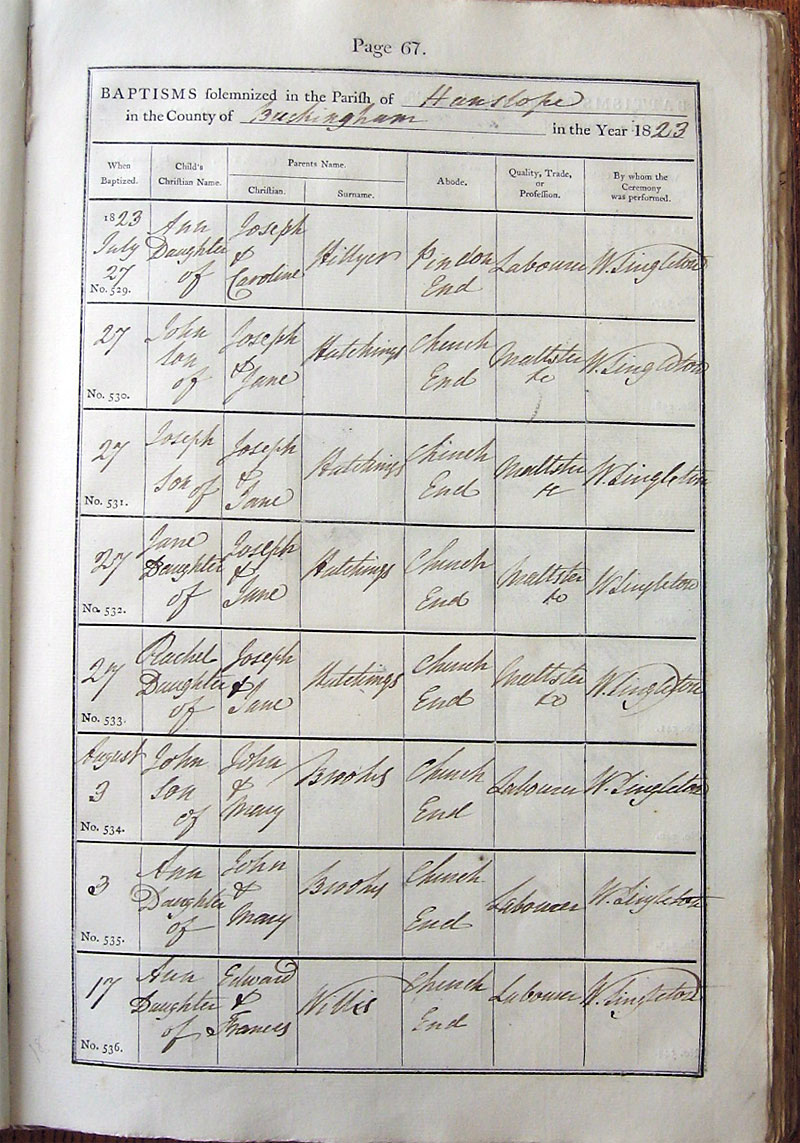 Page 67.
BAPTISMS solemnized in the Parish of Hanslope
in the County of Buckingham in the Year 1823
When Baptized. Child's Christian Name. Parents Name. Abode. Quality, Trade, or Profession. By whom the Ceremony was performed.
Christian. Surname.
1823 July 27 No. 529. Ann Daughter of Joseph & Caroline Hillyer Pindon End Labourer W. Singleton
27 No. 530. John Son of Joseph & Jane Hutchings Church End Maltster &c W. Singleton
27 No. 531. Joseph Son of Joseph & Jane Hutchings Church End Maltster &c W. Singleton
27 No. 532. Jane Daughter of Joseph & Jane Hutchings Church End Maltster &c W Singleton
27 No. 533. Rachel Daughter of Joseph & Jane Hutchings Church End Maltster &c W. Singleton
August 3 No. 534. John Son of John & Mary Brooks Church End Labourer W. Singleton
3 No. 535. Ann Daughter of John & Mary Brooks Church End Labourer W. Singleton
17 No. 536. Ann Daughter of Edward & Frances Willis Church End Labourer W. Singleton